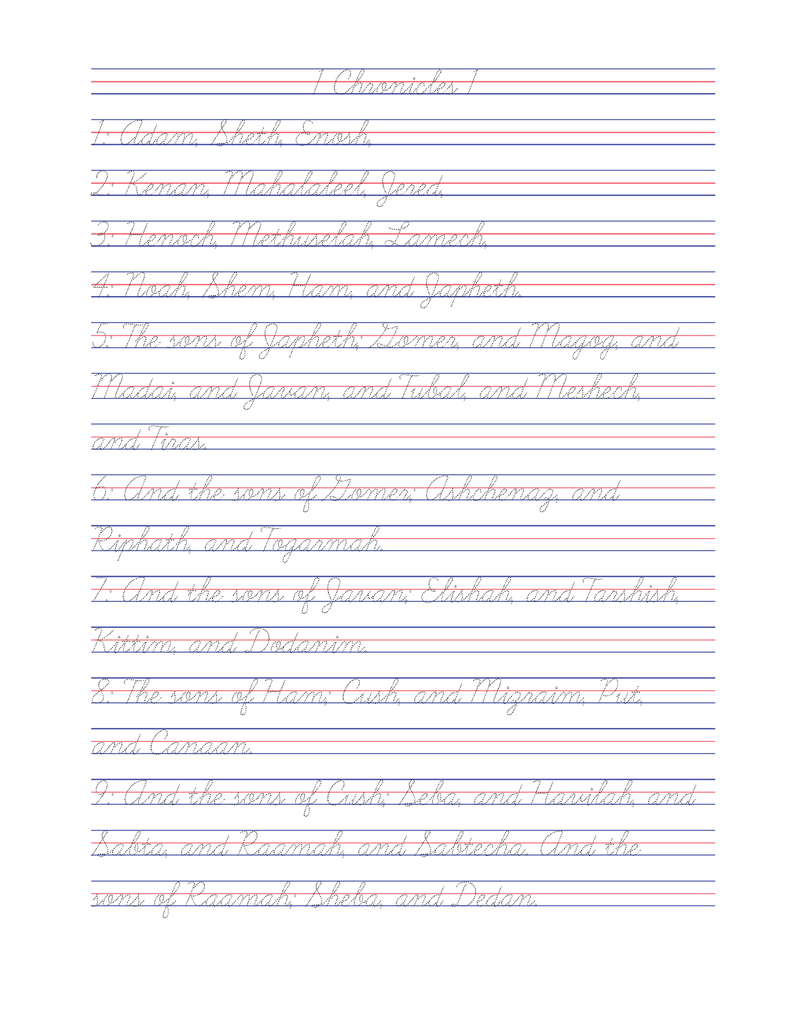 1 Chronicles 1
1: Adam, Sheth, Enosh,
2: Kenan, Mahalaleel, Jered,
3: Henoch, Methuselah, Lamech,
4: Noah, Shem, Ham, and Japheth.
5: The sons of Japheth; Gomer, and Magog, and
Madai, and Javan, and Tubal, and Meshech,
and Tiras.
6: And the sons of Gomer; Ashchenaz, and
Riphath, and Togarmah.
7: And the sons of Javan; Elishah, and Tarshish,
Kittim, and Dodanim.
8: The sons of Ham; Cush, and Mizraim, Put,
and Canaan.
9: And the sons of Cush; Seba, and Havilah, and
Sabta, and Raamah, and Sabtecha. And the
sons of Raamah; Sheba, and Dedan.